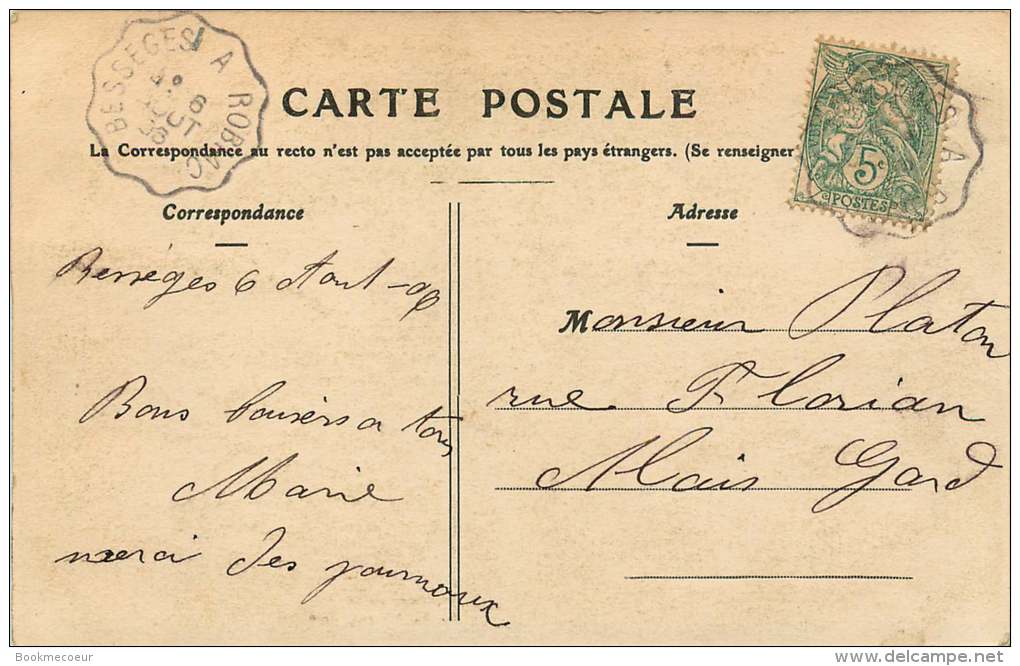 BESSEGES A ROBIAC
6
OCT
06
CARTE POSTALE
La Correspondance au recto n'est pas acceptée par tous les pays étrangers. (Se renseigner
5c
POSTES
Correspondance
Bessèges 6
Bons baisers a tous
Marie
merci des journaux
Adresse
Monsieur Platon
rue Florian
Alais Gard
Bookmecoeur
delcampe.net